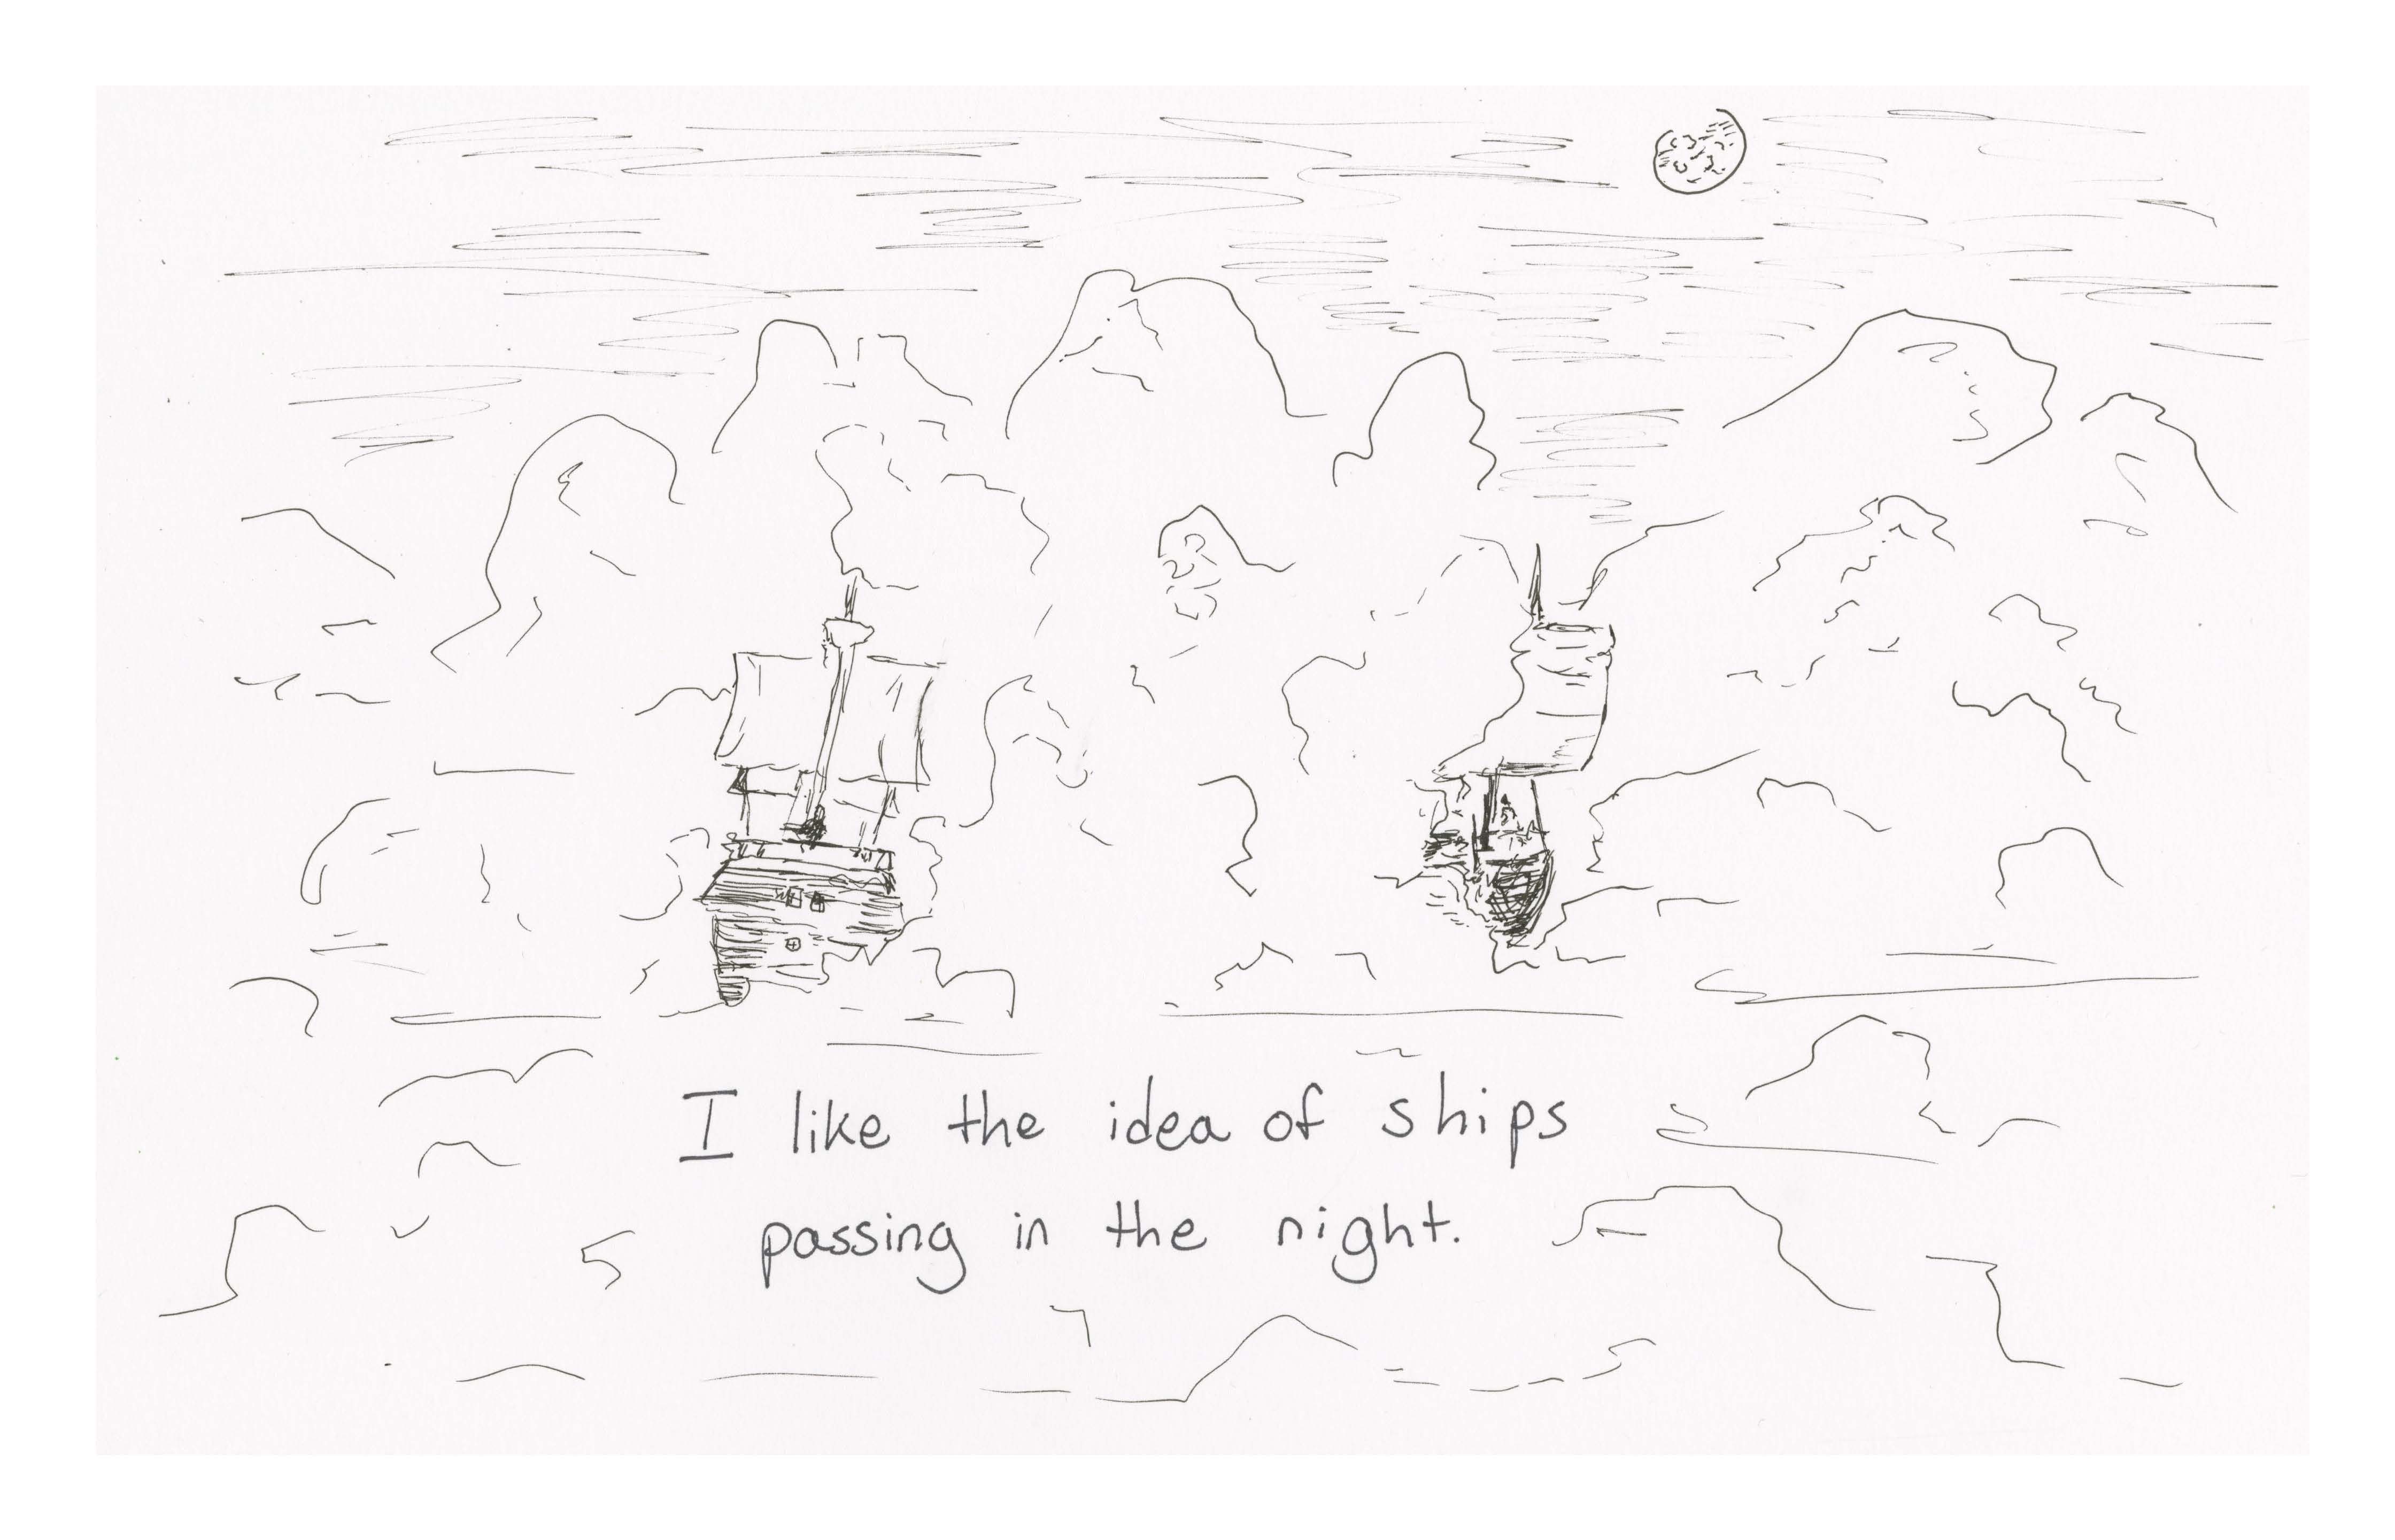 I like the idea of ships
passing in the night.